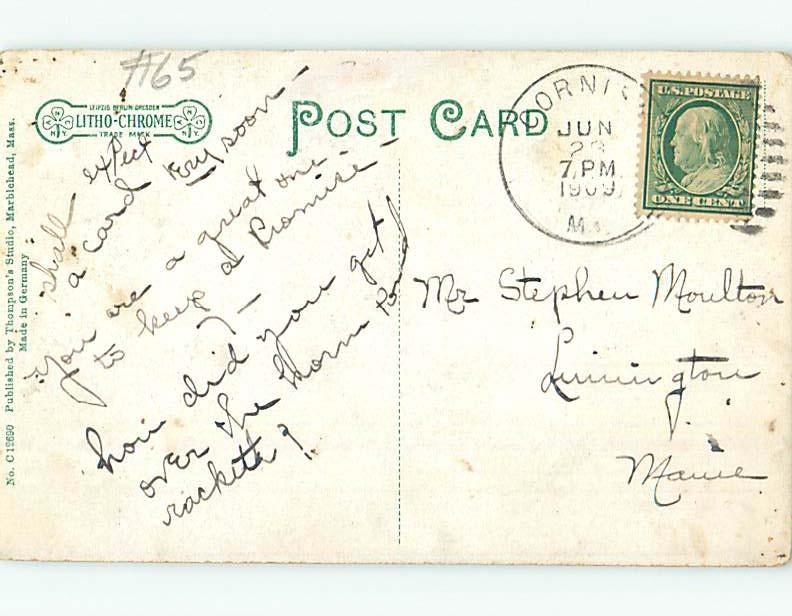 #65
LEIPZIG BERLIN DRESDEN
LITHO-CHROME
TRADE MARK
N.Y. N.Y.
POST CARD
CORNI
JUN
23
7 PM
1909
M
U.S. POSTAGE
ONE CENT
No. C12690 Published by Thompson's Studio, Marblehead, Mass.
Made in Germany
shall expect
a card very soon –
you are a great one
to keep a Promise –
how did you get
over the
rackett?
Mr Stephen Moulton
Limington
Maine